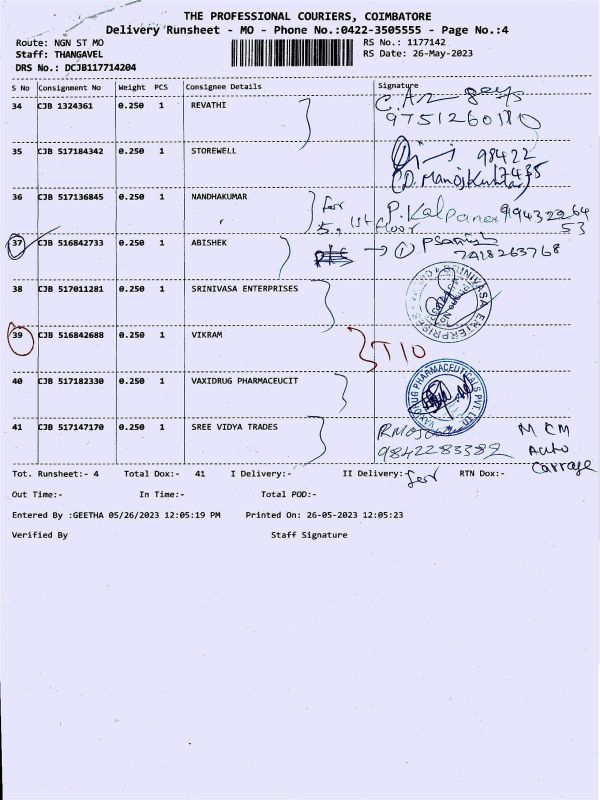 THE PROFESSIONAL COURIERS, COIMBATORE
Delivery Runsheet - MO - Phone No.:0422-3505555 - Page No.:4
Route: NGN ST MO RS No.: 1177142
Staff: THANGAVEL RS Date: 26-May-2023
DRS No.: DCJB117714204
S No Consignment No Weight PCS Consignee Details Signature
34 CJB 1324361 0.250 1 REVATHI
9751260110
35 CJB 517184342 0.250 1 STOREWELL 98422
(D. Manojkumar) 7435
36 CJB 517136845 0.250 1 NANDHAKUMAR for P. Kalpana 99432264
1st floor 53
37 CJB 516842733 0.250 1 ABISHEK 1
7418263768
38 CJB 517011281 0.250 1 SRINIVASA ENTERPRISES SRINIVASA ENTERPRISES
39 CJB 516842688 0.250 1 VIKRAM T10
40 CJB 517182330 0.250 1 VAXIDRUG PHARMACEUCIT VAXIDRUG PHARMACEUTICALS PVT. LTD.
41 CJB 517147170 0.250 1 SREE VIDYA TRADES M CM
9842283382 Auto
Carrage
Tot. Runsheet:- 4 Total Dox:- 41 I Delivery:- II Delivery:- for RTN Dox:-
Out Time:- In Time:- Total POD:-
Entered By :GEETHA 05/26/2023 12:05:19 PM Printed On: 26-05-2023 12:05:23
Verified By Staff Signature